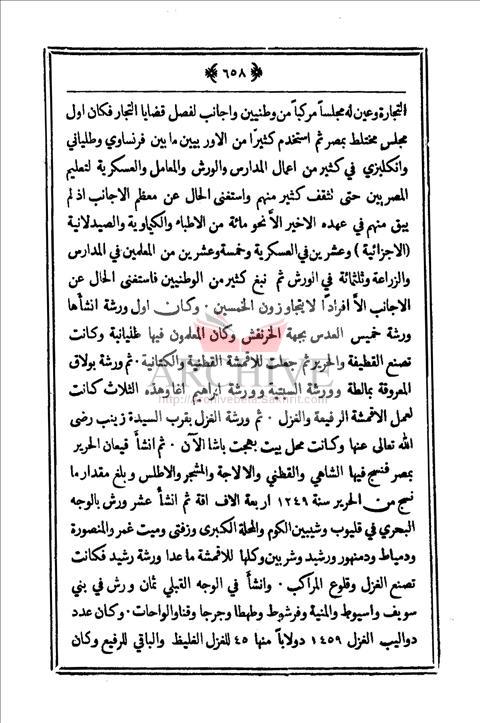 ٦٥٨
التجارة وعين له مجلساً مركباً من وطنيين واجانب لفصل قضايا التجار فكان اول
مجلس مختلط بمصر ثم استخدم كثيرًا من الاوربيين ما بين فرنساوي وطلياني
وانكليزي في كثير من اعمال المدارس والورش والمعامل والعسكرية لتعليم
المصريين حتى نثقف كثير منهم واستغنى الحال عن معظم الاجانب اذ لم
يبق منهم في عهده الاخير الاَّ نحو مائة من الاطباء والكياوية والصيدلانية
(الاجزائية) وعشرين في العسكرية وخمسة وعشرين من المعلمين في المدارس
والزراعة وثلثمائة في الورش ثم نبغ كثير من الوطنيين فاستغنى الحال عن
الاجانب الاَّ افرادًا لا يتجاوزون الخمسين ٠ وكان اول ورشة انشأها
ورشة خميس العدس بجهة الخرنفش وكان المعلمون فيها طليانية وكانت
تصنع القطيفة والحرير ثم جعلت للاقمشة القطنية والكتانية ٠ ثم ورشة بولاق
المعروقة بمالطة وورشة السبتية وورشة ابراهيم اغا وهذه الثلاث كانت
ARCHIVE
http://Archivebeta.Sakhrit.com
لعمل الاقمشة الرفيعة والغزل ٠ ثم ورشة الغزل بقرب السيدة زينب رضى
الله تعالى عنها وكانت محل بيت بهجت باشا الآن ٠ ثم انشأ قيعان الحرير
بمصر فنسج فيها الشاهي والقطني والالاجة والمشجر والاطلس وبلغ مقدار ما
نسج من الحرير سنة ١٢٤٩ اربعة الاف اقة ثم انشأ عشر ورش بالوجه
البحري في قليوب وشيبين الكوم والمحلة الكبرى وزفتى وميت غمر والمنصورة
ودمياط ودمنهور ورشيد وشربين وكلها للاقمشة ما عدا ورشة رشيد فكانت
تصنع الغزل وقلوع المراكب ٠ وانشأ في الوجه القبلي ثمان ورش في بني
سويف واسيوط والمنية وفرشوط وطهطا وجرجا وقنا والواحات ٠ وكان عدد
دواليب الغزل ١٤٥٩ دولاباً منها ٤٥ للغزل الغليظ والباقي للرفيع وكان